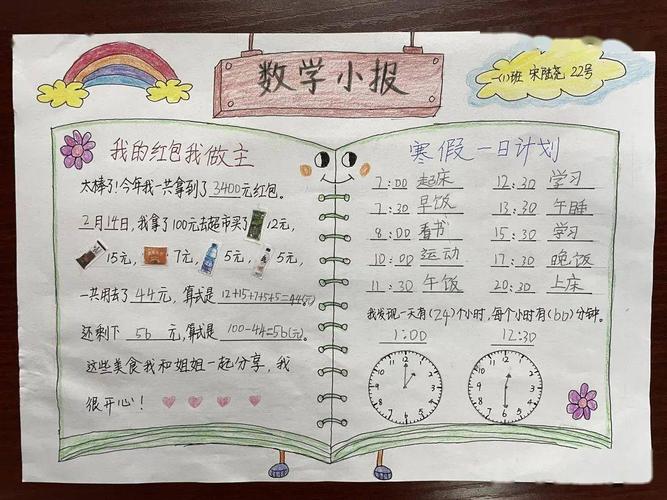 数学小报
一(1)班 宋陆尧 22号
我的红包我做主
太棒了!今年我一共拿到了3400元红包。
2月14日,我拿了100元去超市买了 12元,
15元, 7元, 5元, 5元,
一共用去了44元,算式是12+15+7+5+5=44(元)
还剩下 56 元,算式是 100-44=56(元).
这些美食我和姐姐一起分享,我
很开心!
寒假一日计划
7:00 起床 12:30 学习
7:30 早饭 13:30 午睡
8:00 看书 15:30 学习
10:00 运动 17:30 晚饭
11:30 午饭 20:30 上床
我发现一天有(24)个小时,每个小时有(60)分钟。
1:00 12:30
12 1 2 3 4 5 6 7 8 9 10 11
12 1 2 3 4 5 6 7 8 9 10 11